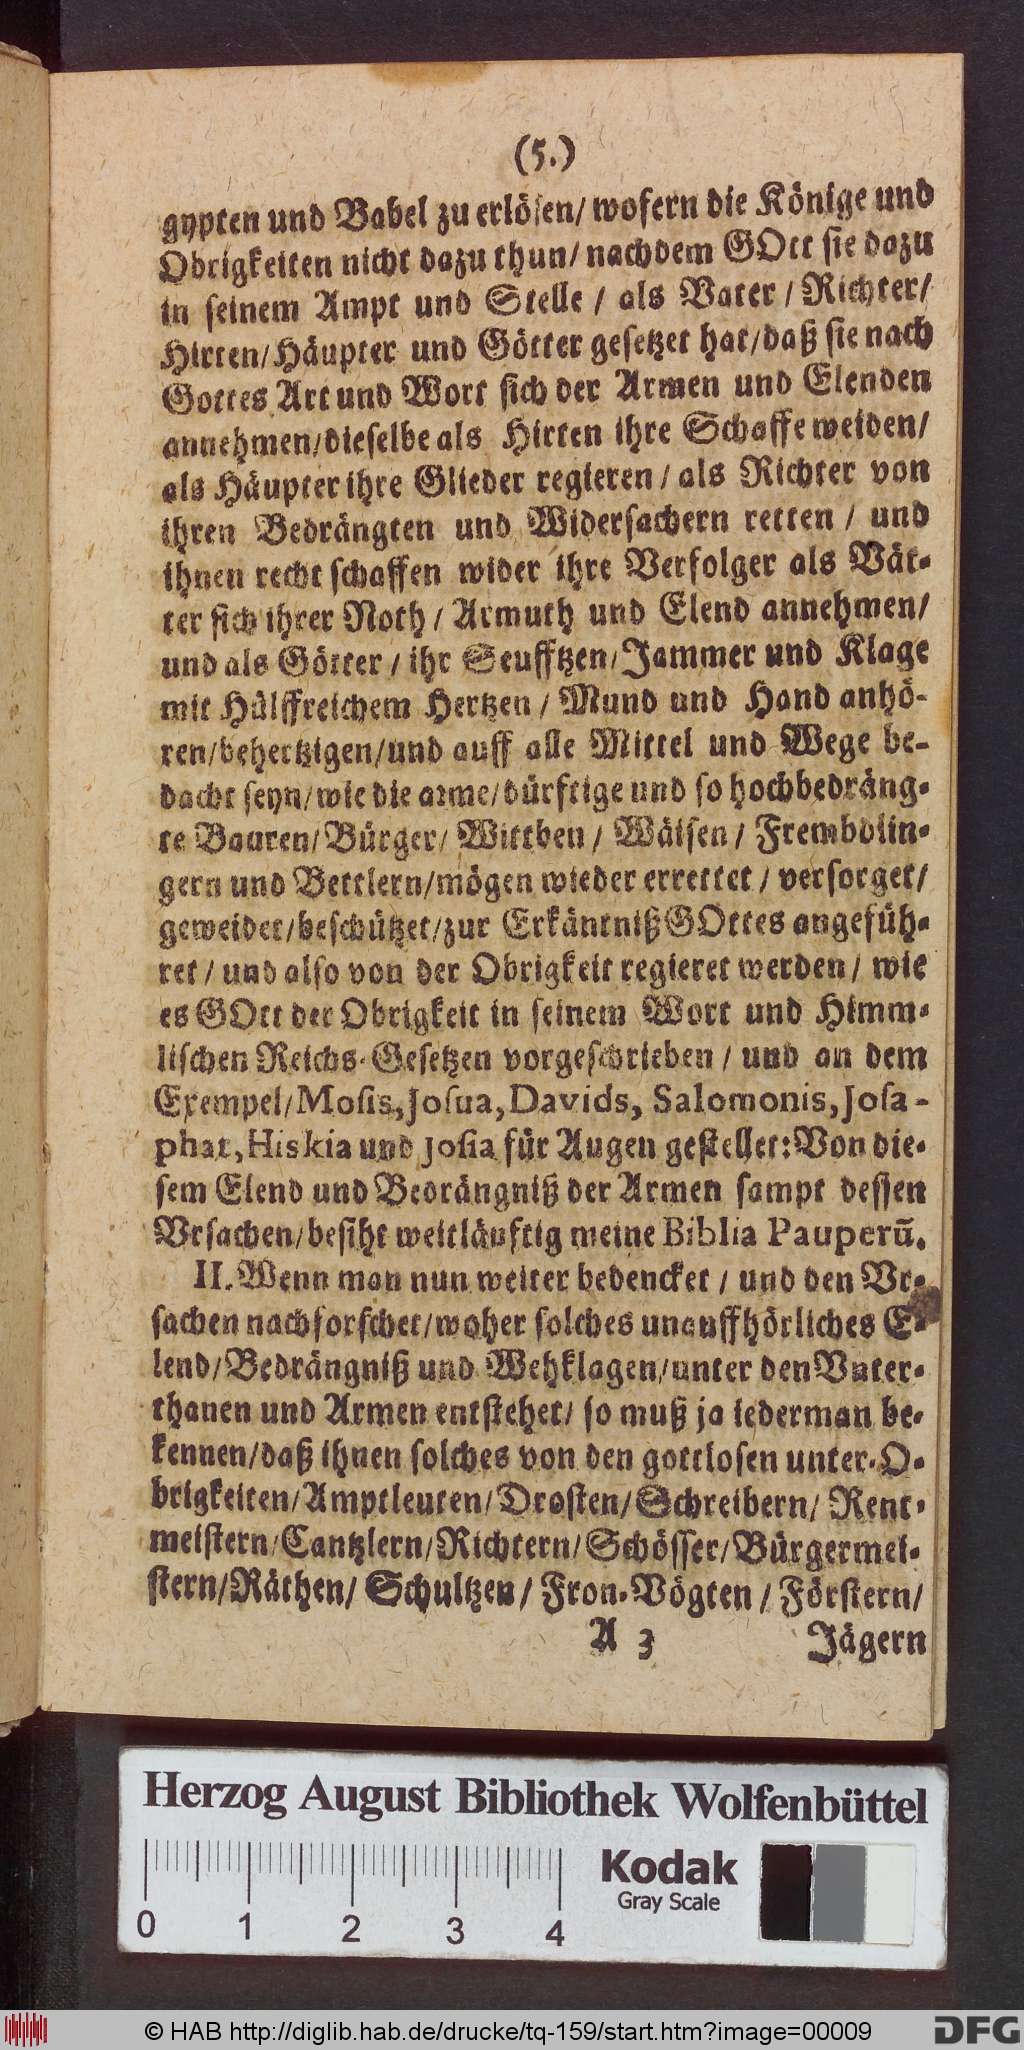 (5.)
gypten und Babel zu erlösen/ wofern die Könige und
Obrigkeiten nicht dazu thun/ nachdem GOtt sie dazu
in seinem Ampt und Stelle / als Vater / Richter/
Hirten/Häupter und Götter gesetzet hat/daß sie nach
Gottes Art und Wort sich der Armen und Elenden
annehmen/dieselbe als Hirten ihre Schaffe weiden/
als Häupter ihre Glieder regieren / als Richter von
ihren Bedrängten und Widersachern retten / und
ihnen recht schaffen wider ihre Verfolger als Vät-
ter sich ihrer Noth / Armuth und Elend annehmen/
und als Götter / ihr Seufftzen/Jammer und Klage
mit Hülffreichem Hertzen / Mund und Hand anhö-
ren/behertzigen/und auff alle Mittel und Wege be-
dacht seyn/wie die arme/dürftige und so hochbedräng-
te Bauren/Bürger/ Wittben / Wäisen / Frembdlin-
gern und Bettlern/mögen wieder errettet / versorget/
geweidet/beschützet/zur Erkäntniß GOttes angefüh-
ret / und also von der Obrigkeit regieret werden / wie
es GOtt der Obrigkeit in seinem Wort und Himm-
lischen Reichs-Gesetzen vorgeschrieben / und an dem
Exempel/Mosis, Josua, Davids, Salomonis, Josa-
phat, Hiskia und Josia für Augen gestellet: Von die-
sem Elend und Bedrängniß der Armen sampt dessen
Vrsachen/besiht weitläuftig meine Biblia Pauperū.
II. Wenn man nun weiter bedencket / und den Vr-
sachen nachforschet/woher solches unauffhörliches E-
lend/Bedrängniß und Wehklagen/unter den Vnter-
thanen und Armen entstehet/ so muß ja iederman be-
kennen/daß ihnen solches von den gottlosen unter-O-
brigkeiten/Amptleuten/Drosten/Schreibern/ Rent-
meistern/Cantzlern/Richtern/Schösser/Bürgermei-
stern/Räthen/ Schultzen / Fron-Vögten / Förstern/
A 3 Jägern
Herzog August Bibliothek Wolfenbüttel
0 1 2 3 4
Kodak
Gray Scale
© HAB http://diglib.hab.de/drucke/tq-159/start.htm?image=00009
DFG